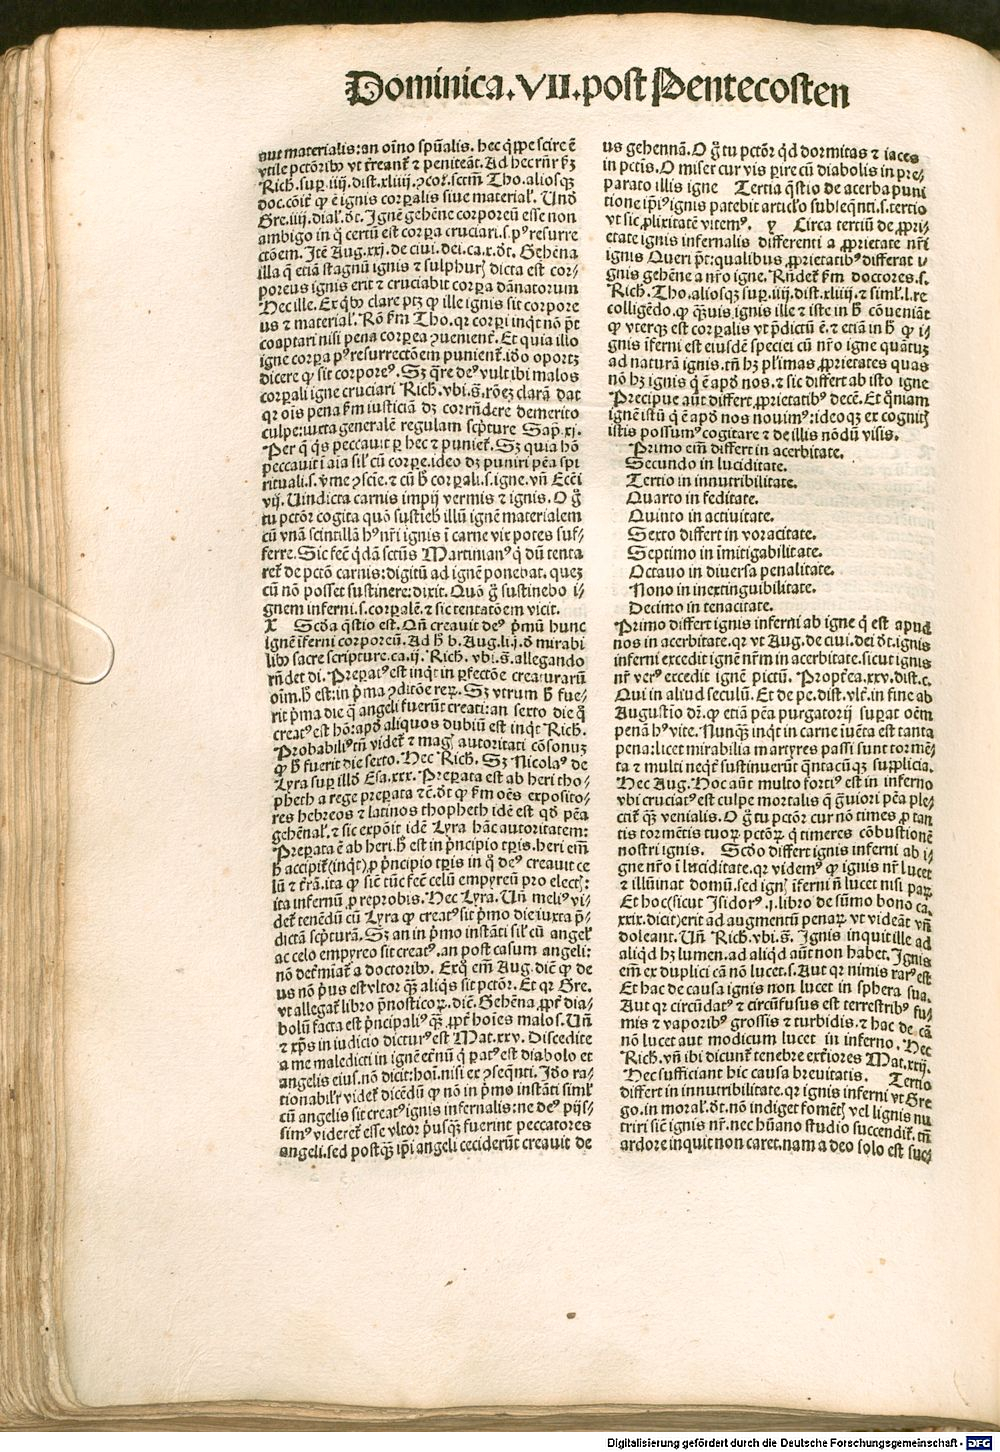 Dominica.VII.post Pentecosten
aut materialis:an oı̃no spũalis. hec q̃ppe scire ẽ
vtile pctõribꝰ vt t̃reant̃ ⁊ peniteãt. Ad hec rñr km̃
Rich. sup. iiij. dist. xliiij. ꝯcor̃. sctm̃ Tho. aliosqꝫ
doc. cõit̃ ꝙ ẽ ignis corpalis siue material̃. Uñ
Gre. iiij. dial. d̃t. Ignẽ gehẽne corporeũ esse non
ambigo in q̃ certũ est corpa cruciari. s. pꝰ resurre
ctõem. Itẽ Aug. xxj. de ciui. dei. ca. x. d̃t. Gehẽna
illa q̃ etiã stagnũ ignis ⁊ sulphurꝭ dicta est cor/
poreus ignis erit ⁊ cruciabit corpa dãnatorum
Hec ille. Ex qͥbꝰ clare ptꝫ ꝙ ille ignis sit corpore
us ⁊ material̃. Rõ km̃ Tho. qr corpi inqͥt nõ põt
coaptari nisi pena corpea ꝯuenient̃. Et quia illo
igne corpa pꝰ resurrectõem punient̃. iõo oportꝫ
dicere ꝙ sit corporeꝰ. Sꝫ q̃re deꝰ vult ibi malos
corpali igne cruciari Rich. vbi. s̃. rõeꝫ clarã dat
qr oı̃s pena km̃ iusticiã dꝫ corrñdere demerito
culpe: iuxta generalẽ regulam sc̃pture Sap. xj.
Per q̃ q̃s peccauit p hec ⁊ puniet̃. Sꝫ quia hõ
peccauit ı̃ aı̃a sil̃ cũ corpe. ideo dꝫ puniri pẽa spi
rituali. s. vṽme ꝯscie. ⁊ cũ h̃ corpali. s. igne. vñ Ecci
vij. Uindicta carnis impij vermis ⁊ ignis. O g̃
tu pctõr cogita quõ sustieb̃ illũ ignẽ materialem
cũ vnã scintillã hꝰ nr̃i ignis ı̃ carne vix potes suf/
ferre. Sic fec̃ q̃dã sctũs Martinianꝰ q̃ dũ tenta
ret̃ de pctõ carnis: digitũ ad ignẽ ponebat. queꝫ
cũ nõ posset sustinere: dixit. Quõ g̃ sustinebo i/
gnem inferni. s. corpalẽ. ⁊ sic tentatõem vicit.
X Scd̃a q̃stio est. Qñ creauit deꝰ p̃mũ hunc
ignẽ ı̃ferni corporeũ. Ad h̃ b. Aug. li. j. d̃ mirabi
libꝰ sacre scripture. ca. ij. Rich. vbi. s̃. allegando
rñdet di. Prepatꝰ est inq̃t in pfectõe creaturarũ
oı̃m. h̃ est: in p̃ma ꝯditõe reꝝ. Sꝫ vtrum h̃ fue/
rit p̃ma die q̃ angeli fuerũt creati: an sexto die q̃
creatꝰ est hõ: apd̃ aliquos dubiũ est inq̃t Rich.
Probabiliꝰ tñ videt̃ ⁊ magꝭ autoritati cõsonuꝫ
ꝙ h̃ fuerit die sexto. Hec Rich. Sꝫ Nicolaꝰ de
Lyra sup illd̃ Esa. xxx. Prepata est ab heri tho/
pheth a rege prepata ⁊c̃. d̃t ꝙ km̃ oẽs exposito/
res hebreos ⁊ latinos thopheth idẽ est qd̃ pẽa
gehẽnal̃. ⁊ sic expõit idẽ Lyra hãc autoritatem:
Prepata ẽ ab heri. h̃ est in p̃ncipio tp̃is. heri eı̃m
h̃ accipit̃ (inqͥt) ꝓ p̃ncipio tp̃is in q̃ deꝰ creauit ce
lũ ⁊ t̃rã. ita ꝙ sic̃ tũc fec̃ celũ empyreũ pro electꝭ:
ita infernũ ꝓ reprobis. Hec Lyra. Uñ meliꝰ vi/
det̃ tenẽdũ cũ Lyra ꝙ creatꝰ sit p̃mo die iuxta p̃/
dictã sc̃pturã. Sꝫ an in p̃mo instãti sil̃ cũ angel̃
ac celo empyreo sit creatꝰ. an post casum angeli:
nõ det̃miat̃ a doctoribꝰ. Ex q̃ eı̃m Aug. diẽ ꝙ de
us nõ p̃us est vltor qꝫ̃ aliq̃s sit pctõr. Et qr Gre.
vt allegat̃ libro p̃nosticoꝝ. diẽ. Gehẽna ꝓpt̃ dia/
bolũ facta est p̃ncipaliꝰ qꝫ̃ ꝓpt̃ hoı̃es malos. Uñ
⁊ xp̃s in iudicio dicturꝰ est Mat. xxv. Discedite
a me maledicti in ignẽ et̃nũ q̃ patꝰ est diabolo et
angelis eius. nõ dicit: hoı̃. nisi ex ꝯseq̃nti. Iõo ra/
tionabilr̃ videt̃ dicẽdũ ꝙ nõ in p̃mo instãti siml̃
cũ angelis sit creatꝰ ignis infernalis: ne deꝰ pijs/
simꝰ videret̃ esse vltor p̃usqꝫ fuerint peccatores
angeli. sed postqꝫ ip̃i angeli ceciderũt creauit de
us gehennã. O g̃ tu pctõr qd̃ dormitas ⁊ iaces
in pctĩs. O miser cur vis pire cũ diabolis in pre/
parato illis igne Tertia q̃stio de acerba puni
tione ip̃iꝰ ignis patebit articl̃o subseq̃nti. s. tertio
vt sic ꝓlixitatẽ vitemꝰ. y Circa tertiũ de ꝓpri/
etate ignis infernalis differenti a ꝓprietate nr̃i
ignis Queri põt: qualibus ꝓprietatibꝰ differat i/
gnis gehẽne a nr̃o igne. Rñdet̃ km̃ doctores. s.
Rich. Tho. aliosqꝫ sup. iiij. dist. xliiij. ⁊ simĩ. l. re
colligẽdo. ꝙ qꝫ̃uis ignis ille ⁊ iste in h̃ cõueniãt
ꝙ vterqꝫ est corpalis vt p̃dictũ ẽ. ⁊ etiã in h̃ ꝙ i/
gnis ı̃ferni est eiusdẽ speciei cũ nr̃o igne quãtuꝫ
ad naturã ignis. tñ hꝫ pl̃imas ꝓprietates quas
nõ hꝫ ignis q̃ ẽ apd̃ nos. ⁊ sic differt ab isto igne
Precipue aũt differt ꝓprietatibꝰ decẽ. Et qm̃iam
ignẽ istũ q̃ ẽ apd̃ nos nouimꝰ: ideoqꝫ ex cognitꝭ
istis possumꝰ cogitare ⁊ de illis nõdũ visis.
Primo eı̃m differt in acerbitate.
Secundo in luciditate.
Tertio in innutribilitate.
Quarto in feditate.
Quinto in actiuitate.
Sexto differt in voracitate.
Septimo in ı̃mitigabilitate.
Octauo in diuersa penalitate.
Nono in inextinguibilitate.
Decimo in tenacitate.
Primo differt ignis inferni ab igne q̃ est apud
nos in acerbitate. qr vt Aug. de ciui. dei d̃t. ignis
inferni excedit ignẽ nr̃m in acerbitate. sicut ignis
nr̃ verꝰ excedit ignẽ pictũ. Propt̃ea. xxv. dist. c.
Qui in aliud seculũ. Et de pe. dist. vlt̃. in fine ab
Augustı̃o dr̃. ꝙ etiã pẽa purgatorij supat oẽm
penã hꝰ vite. Nunqꝫ̃ inq̃t in carne iuẽta est tanta
pena: licet mirabilia martyres passi sunt tormẽ/
ta ⁊ multi neqͥt̃ sustinuerũt q̃ntacũqꝫ supplicia.
Hec Aug. Hoc aũt multo fortiꝰ est in inferno
vbi cruciatꝰ est culpe mortalis q̃ g̃uiori pẽa ple/
ctit̃ qꝫ̃ venialis. O g̃ tu pctõr cur nõ times ꝓ tan
tis tormẽtis tuoꝝ pctõꝝ q̃ timeres cõbustionẽ
nostri ignis. Scd̃o differt ignis inferni ab i/
gne nr̃o ı̃ luciditate. qr videmꝰ ꝙ ignis nr̃ lucet
⁊ illũinat domũ. sed ignꝭ ı̃ferni ñ lucet nisi paꝝ
Et hoc (sicut Isidorꝰ. j. libro de sũmo bono ca.
xxix. dicit) erit ad augmentũ penaꝝ vt videãt vñ
doleant. Uñ Rich. vbi. s̃. Ignis inquit ille ad
aliqd̃ hꝫ lumen. ad aliqd̃ aũt non habet. Ignis
eı̃m ex duplici cã nõ lucet. s. Aut qr nimis rarꝰ est
Et hac de causa ignis non lucet in sphera sua.
Aut qr circũdatꝰ ⁊ circũfusus est terrestribꝰ fu/
mis ⁊ vaporibꝰ grossis ⁊ turbidis. ⁊ hac de cã
nõ lucet aut modicum lucet in inferno. Hec
Rich. vñ ibi dicunt̃ tenebre ext̃iores Mat. xxij.
Hec sufficiant hic causa breuitatis. Tertio
differt in innutribilitate. qr ignis inferni vt Gre
go. in moral̃. d̃t. nõ indiget fomẽtꝭ vel lignis nu
triri sic̃ ignis nr̃. nec hũano studio succendit̃. tñ
ardore inquit non caret. nam a deo solo est suc/
Digitalisierung gefördert durch die Deutsche Forschungsgemeinschaft - DFG